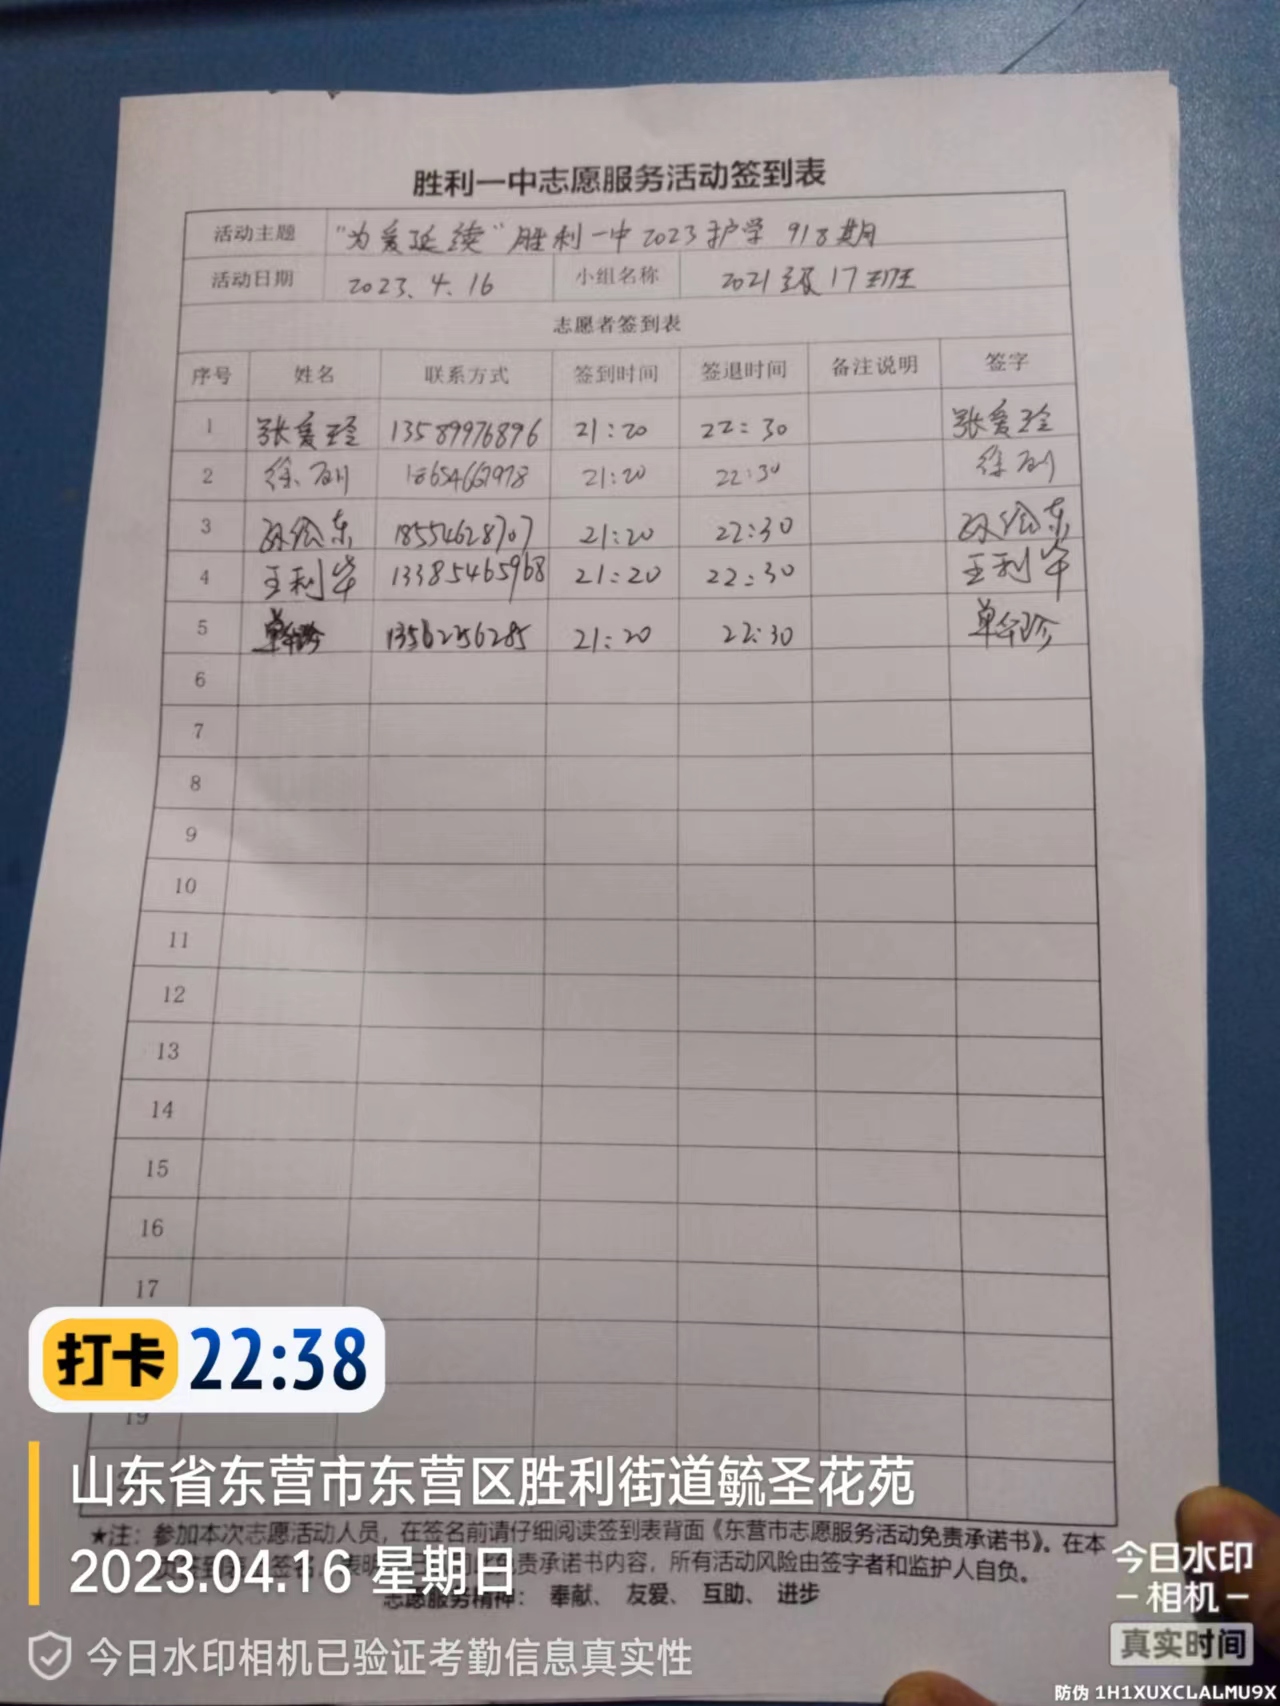 胜利一中志愿服务活动签到表
活动主题 "为爱延续"胜利一中2023护学918期
活动日期 2023.4.16 小组名称 2021级17班
志愿者签到表
序号 姓名 联系方式 签到时间 签退时间 备注说明 签字
1 张爱玲 13589976896 21:20 22:30 张爱玲
2 徐 21:20 22:30 徐
3 18554628707 21:20 22:30
4 王利华 13385465968 21:20 22:30 王利华
5 13562256285 21:20 22:30 单
6
7
8
9
10
11
12
13
14
15
16
17
19
打卡 22:38
山东省东营市东营区胜利街道毓圣花苑
★注：参加本次志愿活动人员，在签名前请仔细阅读签到表背面《东营市志愿服务活动免责承诺书》。在本
免责承诺书内容，所有活动风险由签字者和监护人自负。
2023.04.16 星期日
志愿服务精神： 奉献、 友爱、 互助、 进步
今日水印相机已验证考勤信息真实性
今日水印
-相机-
真实时间
防伪 1H1XUXCLALMU9X